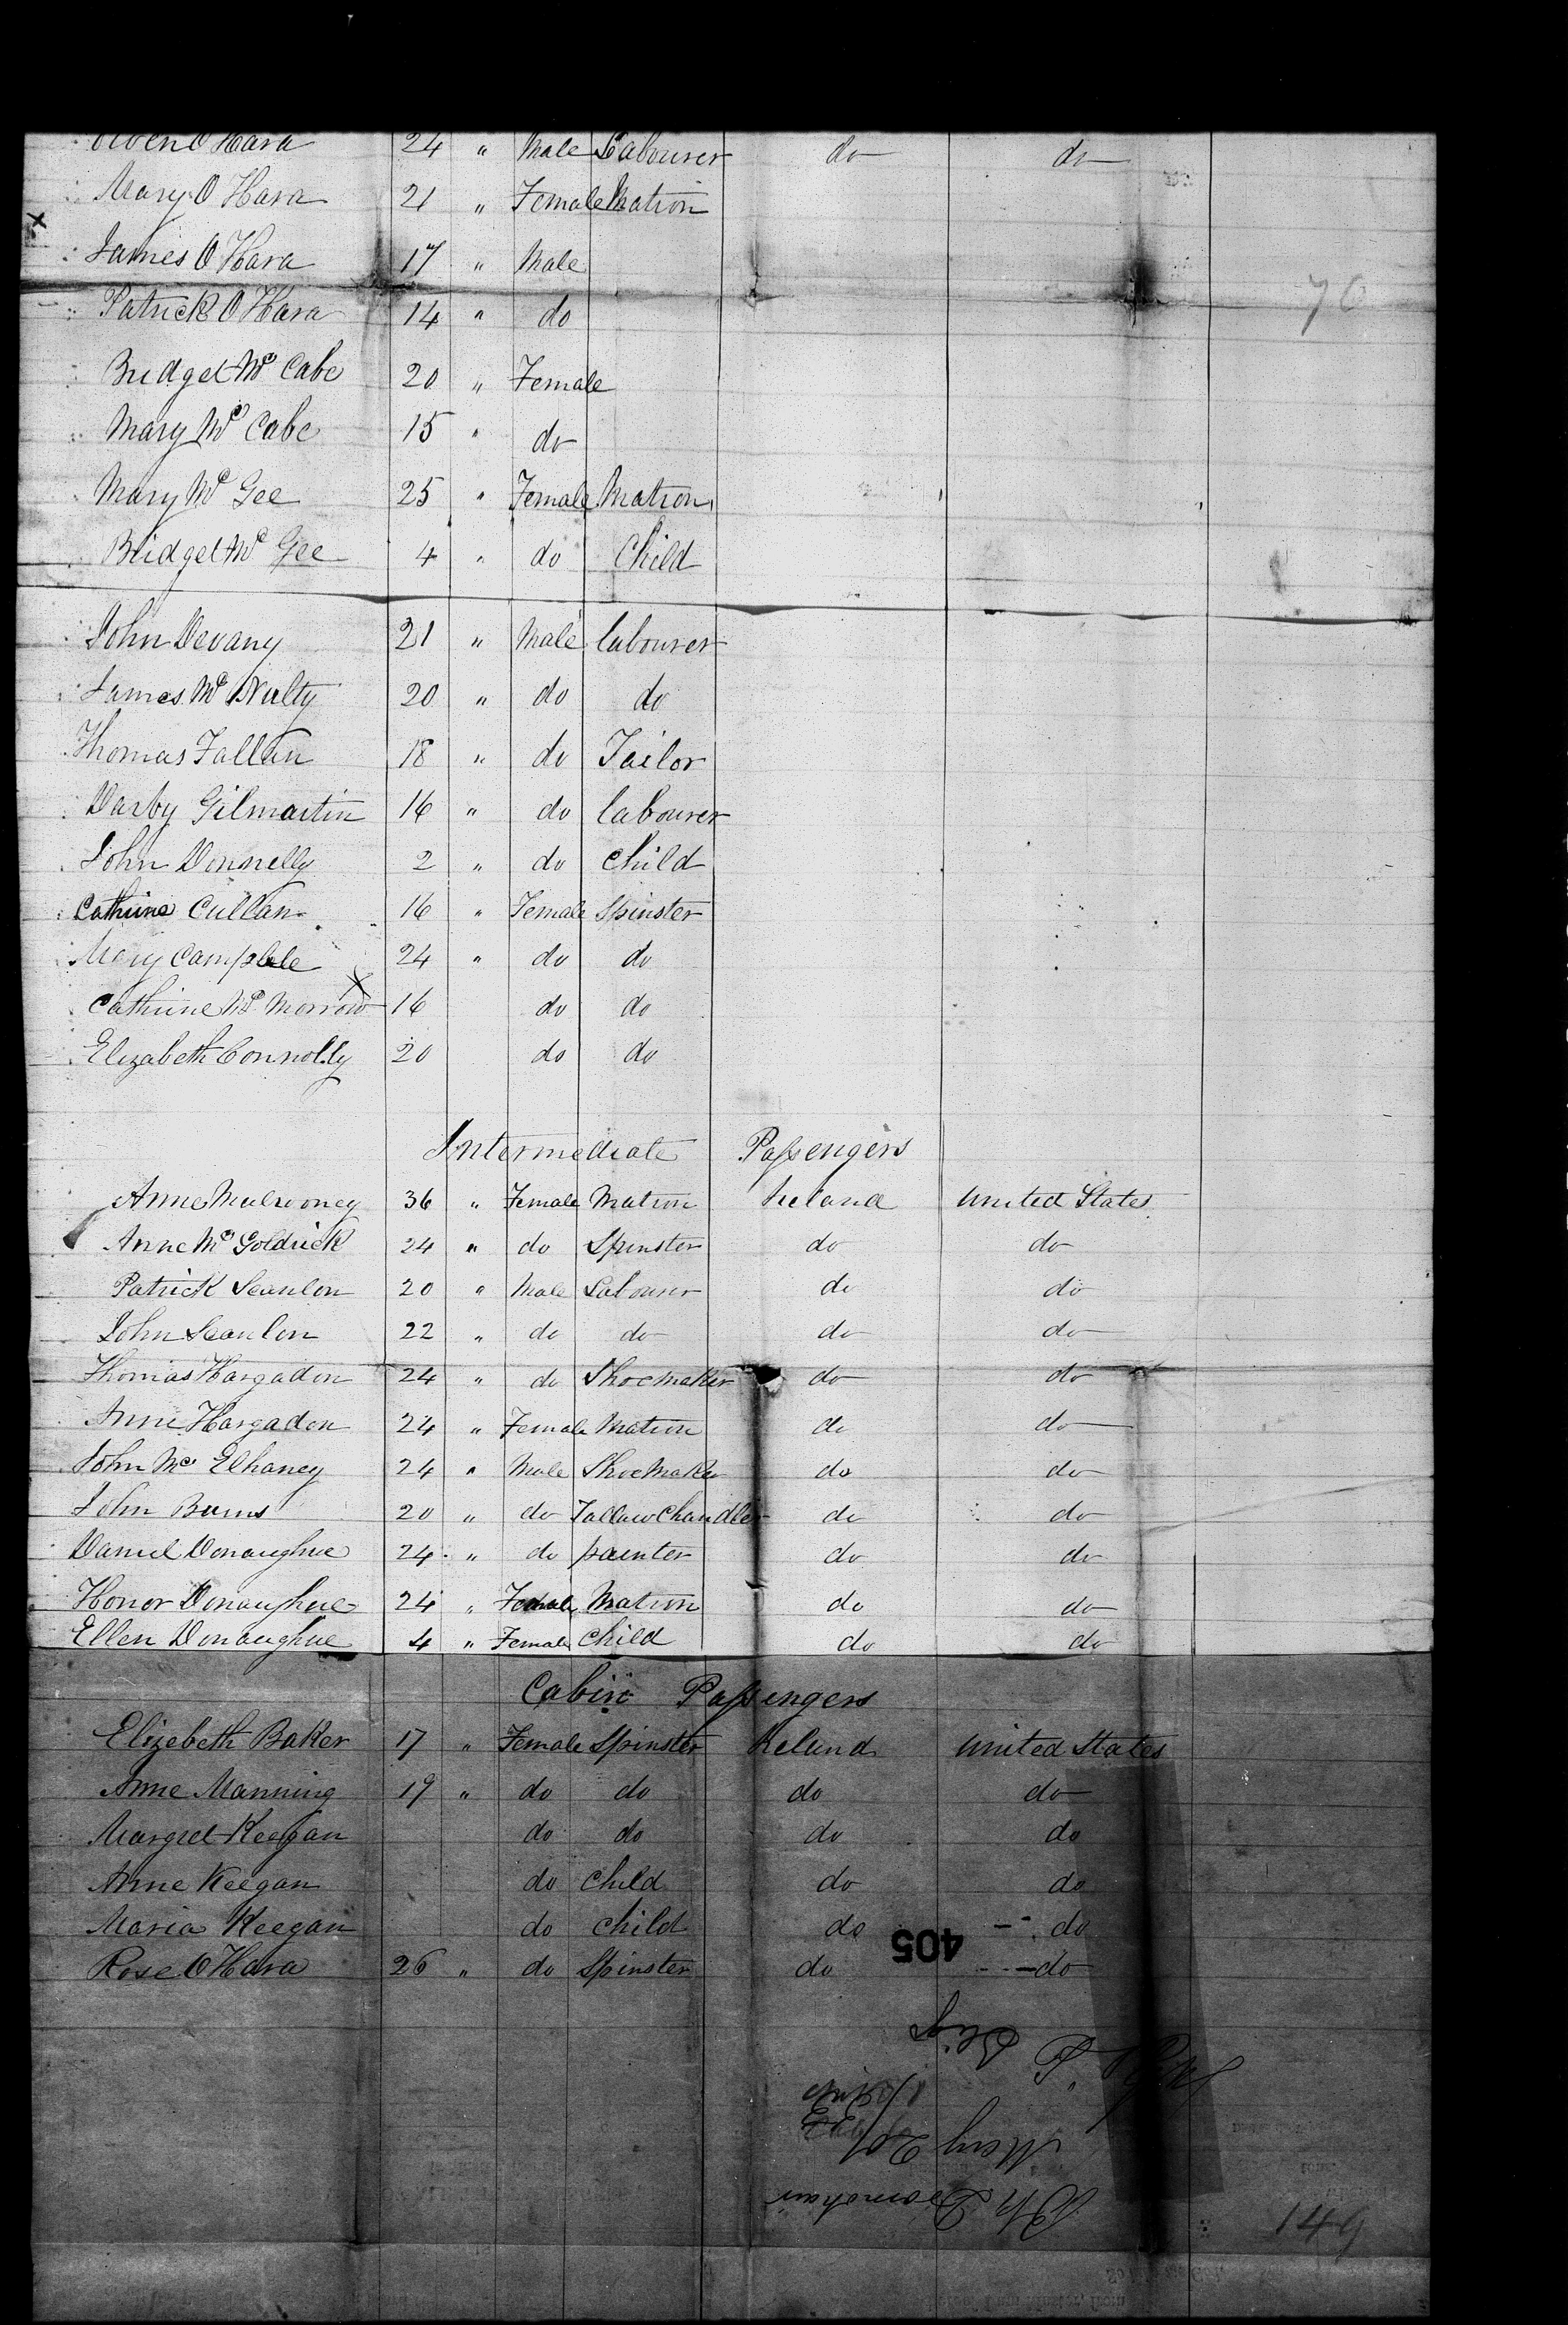 Owen O Hara 24 " Male Labourer do do
Mary O Hara 21 " Female Matron
James O Hara 17 " Male
Patrick O Hara 14 " do
76
Bridget Mc Cabe 20 " Female
Mary Mc Cabe 15 " do
Mary Mc Gee 25 " Female Matron
Bridget Mc Gee 4 " do Child
John Devany 21 " Male labourer
James Mc Nulty 20 " do do
Thomas Fallan 18 " do Tailor
Darby Gilmartin 16 " do labourer
John Donnelly 2 " do Child
Cathrine Cullan 16 " Female Spinster
Mary Camplele 24 " do do
Cathrine Mc Morrow 16 do do
Elizabeth Connolly 20 do do
Intermediate Passengers
Anne Mulrooney 36 " Female Matron Ireland United States
Anne Mc Goldrick 24 " do Spinster do do
Patrick Scanlon 20 " Male Labourer do do
John Scanlon 22 " do do do do
Thomas Hargadon 24 " do Shoemaker do do
Anne Hargadon 24 " Female Matron do do
John Mc Elhaney 24 " Male Shoemaker do do
John Burns 20 " do Tallow Chandler do do
Daniel Donaughue 24 " do painter do do
Honor Donaughue 24 " Female Matron do do
Ellen Donaughue 4 " Female Child do do
Cabin Passengers
Elizebeth Baker 17 " Female Spinster Ireland United States
Anne Manning 19 " do do do do
Margret Keegan do do do do
Anne Keegan do Child do do
Maria Keegan do Child do do
Rose O Hara 26 " do Spinster do do
405
Sligo
149